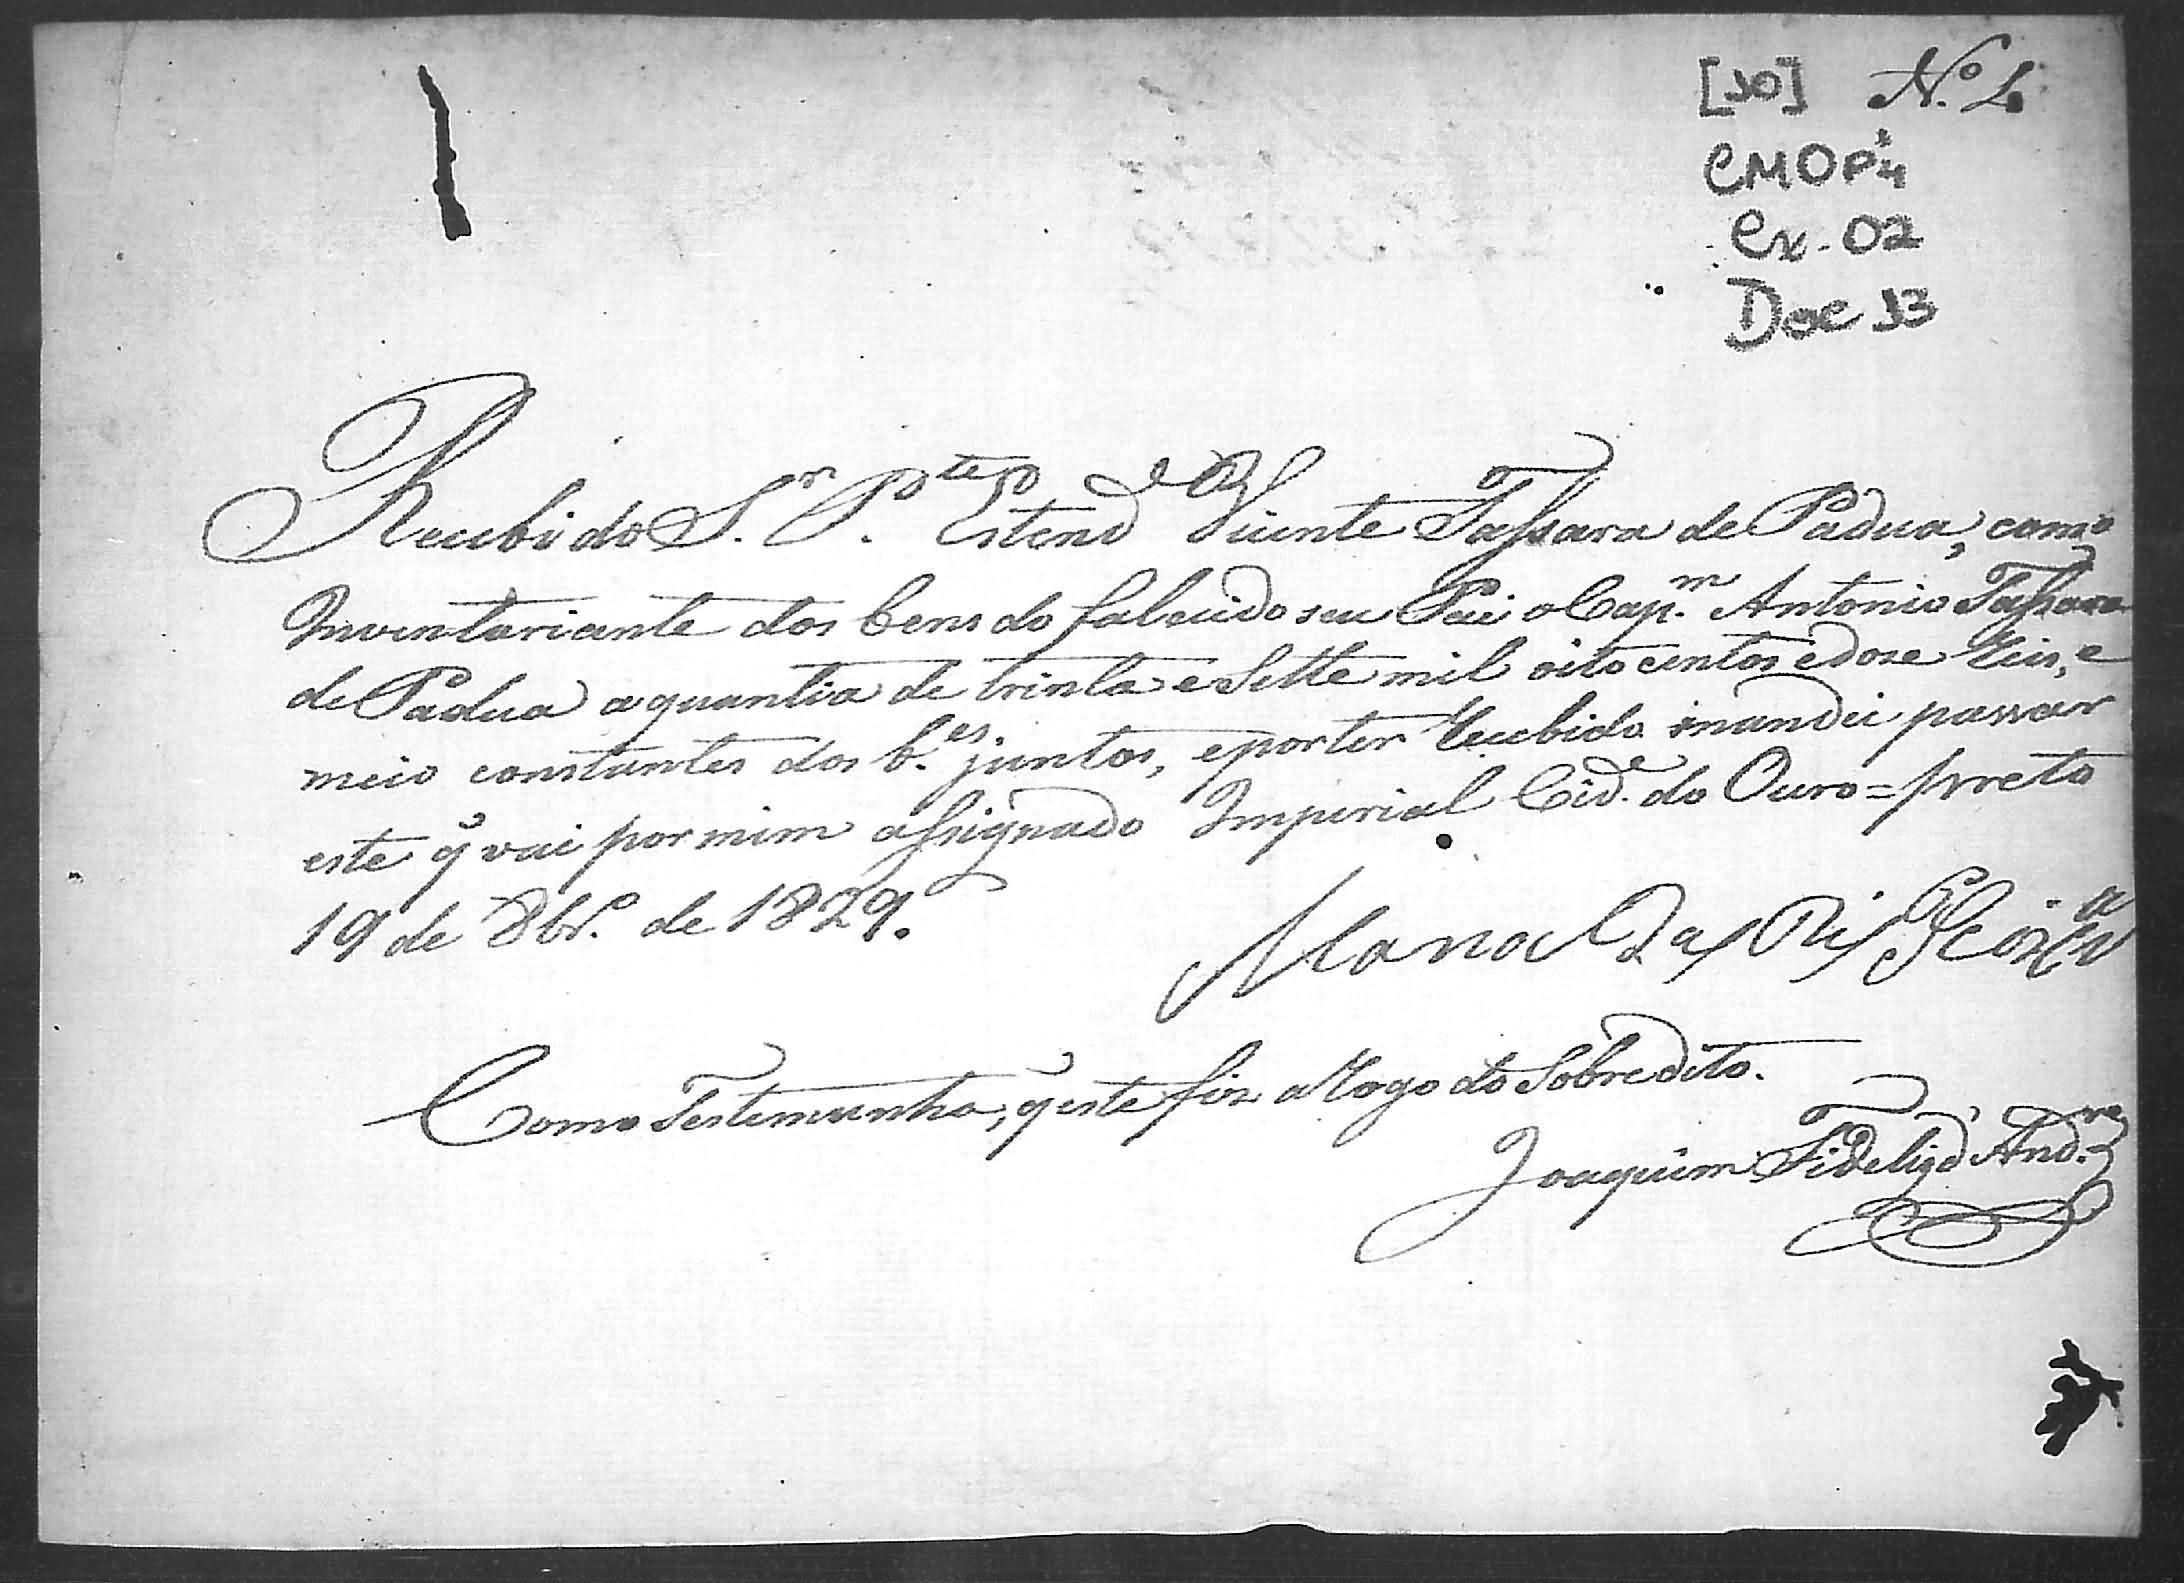 [10] Nº 2
CMOP
Cx. 02
Doc 13
Recebi do S.r P. Vicente Tassara de Padua, como
Inventariante dos bens do falecido seu Pai o Cap.m Antonio Tassara
de Padua a quantia de trinta e Sette mil oito centos e dose Reis, e
meio constantes dos b.es juntos, e por ter Recebido mandei passar
este q̃ vai por mim assignado Imperial Cid.e do Ouro=preto
19 de 8br.o de 1829.
Como Testemunha, q̃ este fiz a Rogo do Sobredito.
Joaquim Fideliz d' And.re